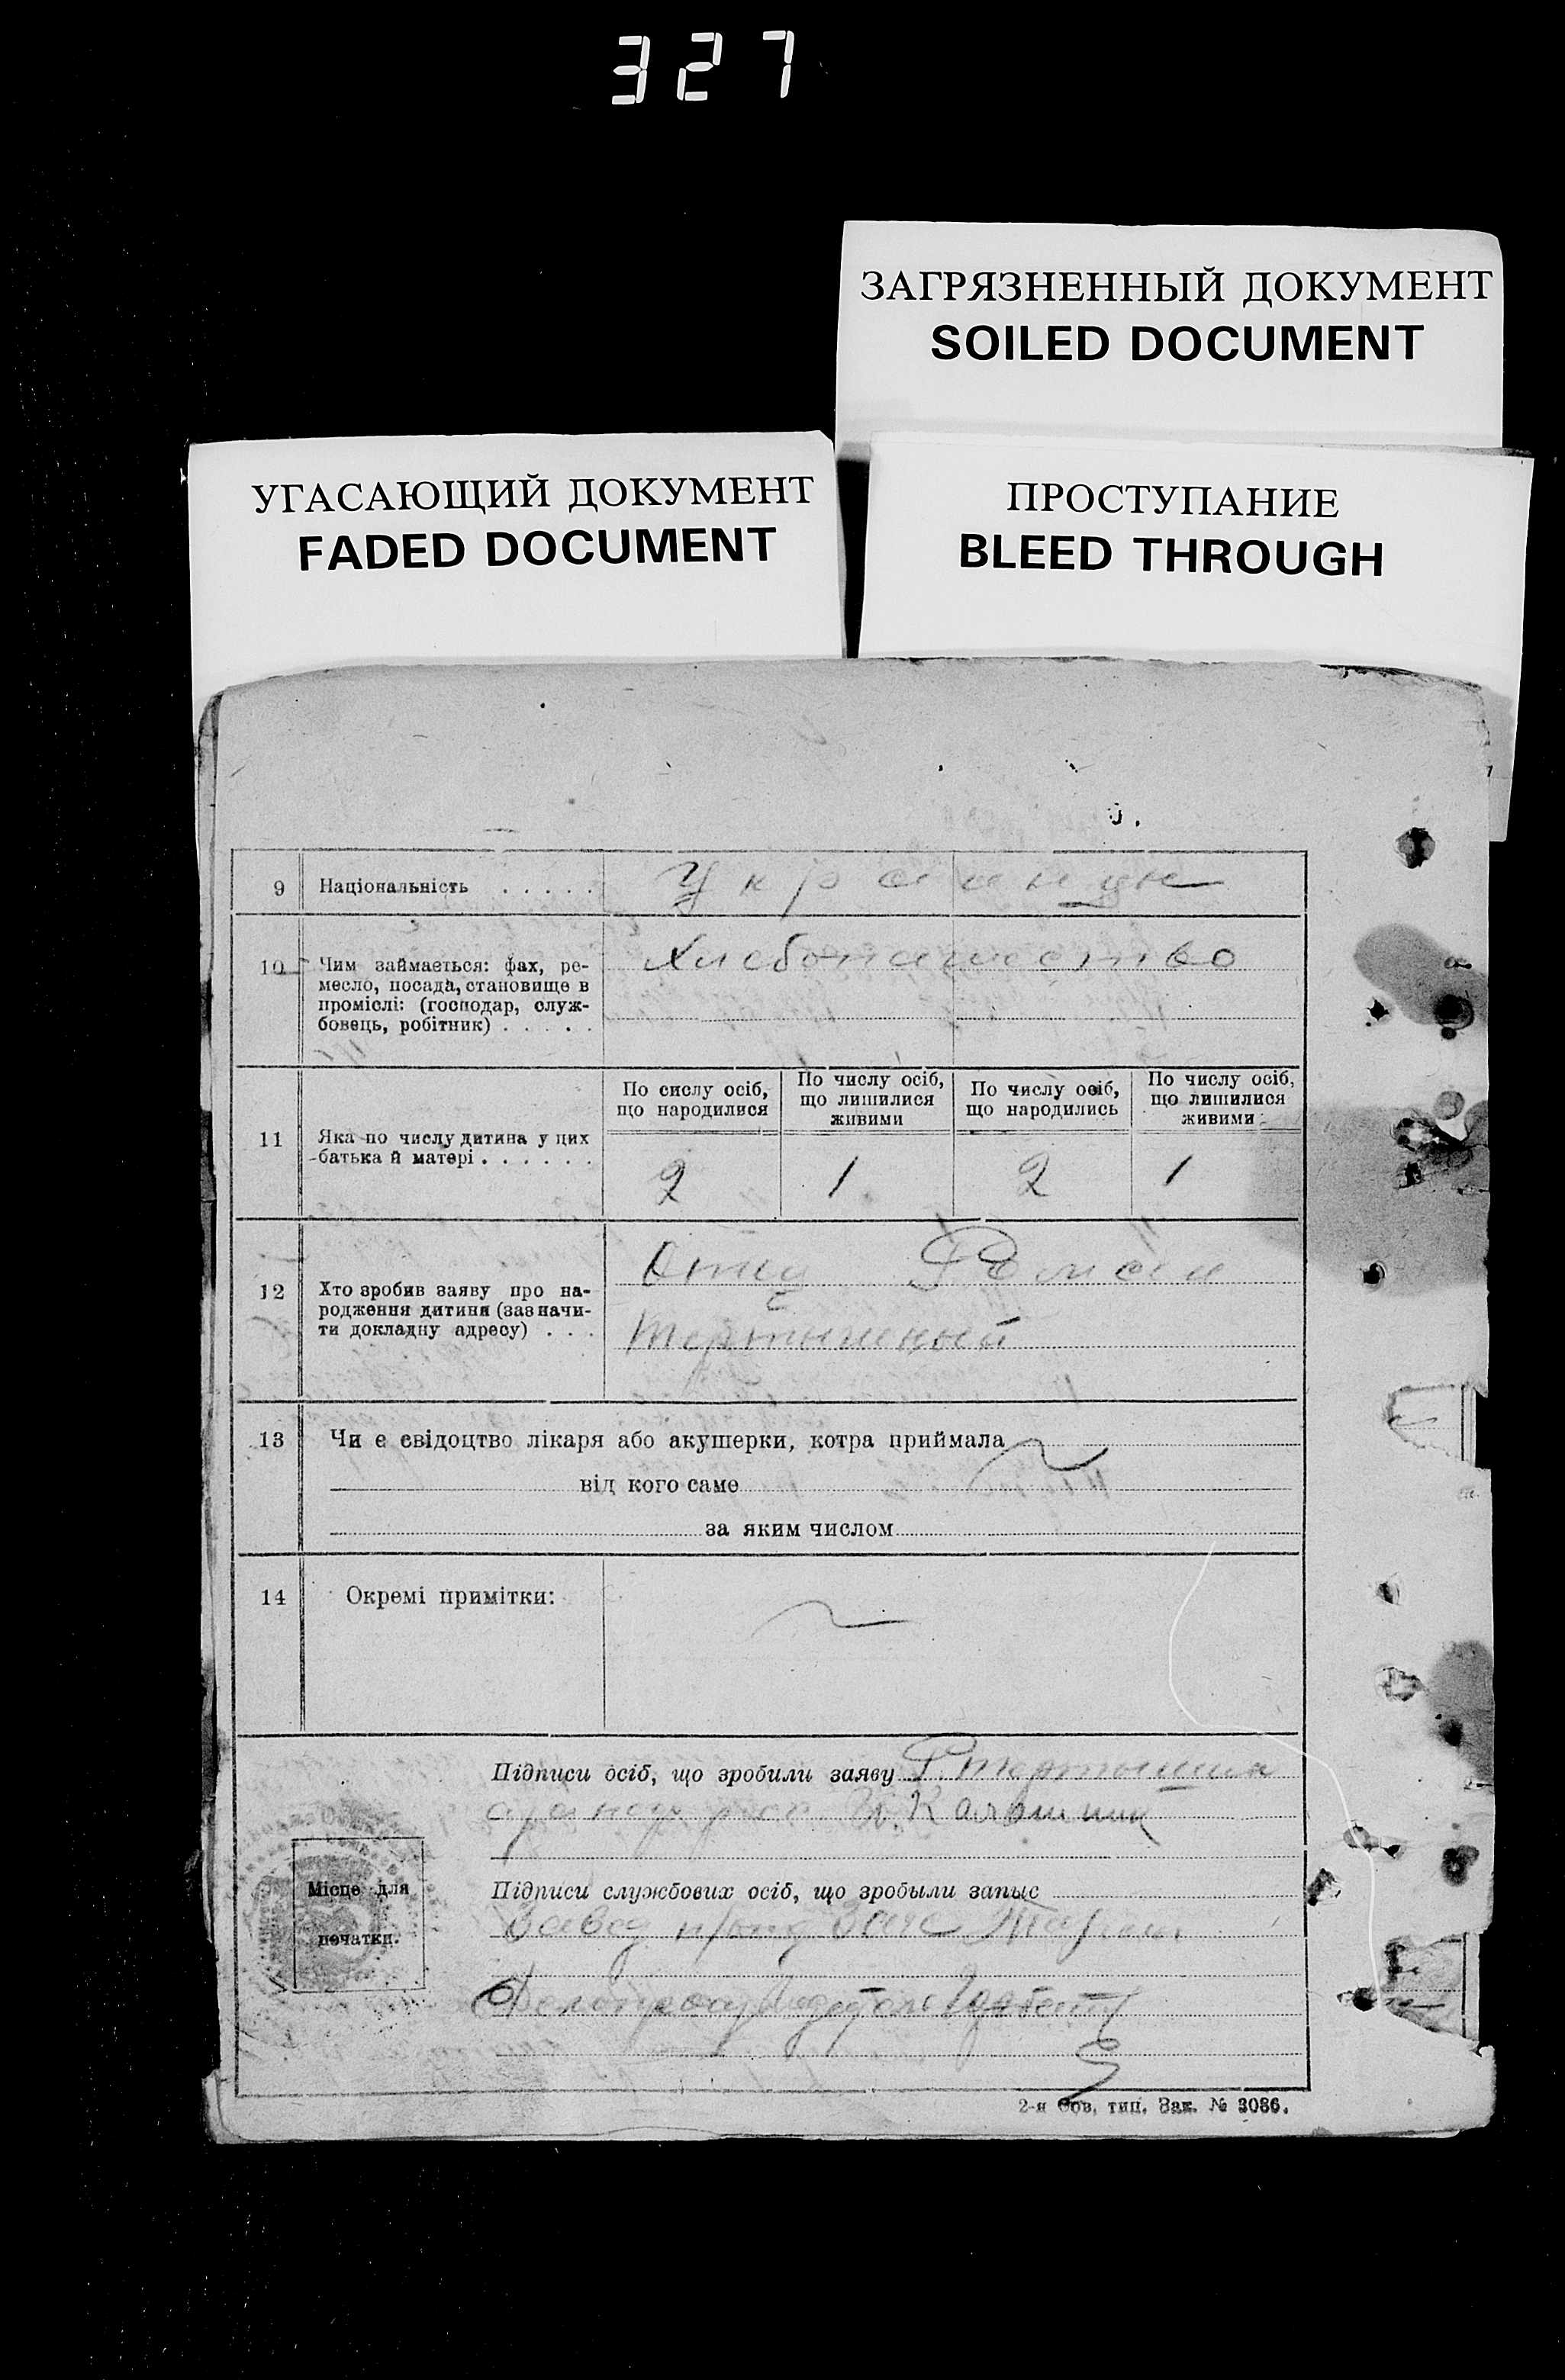 327
ЗАГРЯЗНЕННЫЙ ДОКУМЕНТ
SOILED DOCUMENT
УГАСАЮЩИЙ ДОКУМЕНТ
FADED DOCUMENT
ПРОСТУПАНИЕ
BLEED THROUGH
9 Національність . . . . . Украинцы
10 Чим займається: фах, ре-
месло, посада, становище в
проміслі: (господар, служ-
бовець, робітник) . . . . .
Хлебопашество
11 Яка по числу дитина у цих
батька й матері . . . . . .
По сислу осіб,
що народилися
По числу осіб,
що лишилися
живими
По числу осіб,
що народились
По числу осіб,
що лишилися
живими
2 1 2 1
12 Хто зробив заяву про на-
родження дитини (зазначи-
ти докладну адресу) . . .
Отец Роман
Тертышный
13 Чи е свідоцтво лікаря або акушерки, котра приймала
від кого саме
за яким числом
14 Окремі примітки:
Підписи осіб, що зробили заяву Р. Тертышни
Калашник
Місце для
печатки.
Підписи службових осіб, що зробыли запыс
Завед п/отд Загс
Делопроизводитель
2-я Сов. тип. Зак. № 3086.